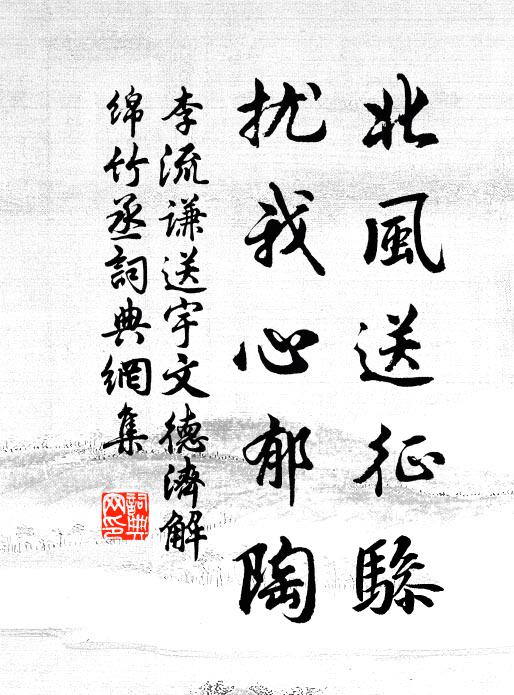 北風送征驂
扰我心郁陶
李流谦送宇文德濟解
绵竹丞詞典網集
詞典網印